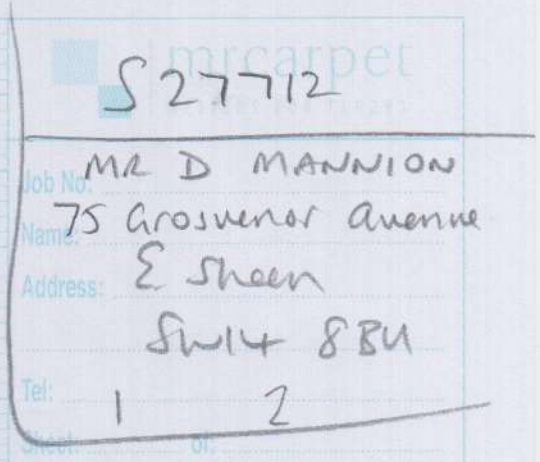 mrcarpet
S27712
Job No:
MR D MANNION
Name:
75 Grosvenor Avenue
Address:
E Sheen
SW14 8BU
Tel:
1 2
Sheet: of: